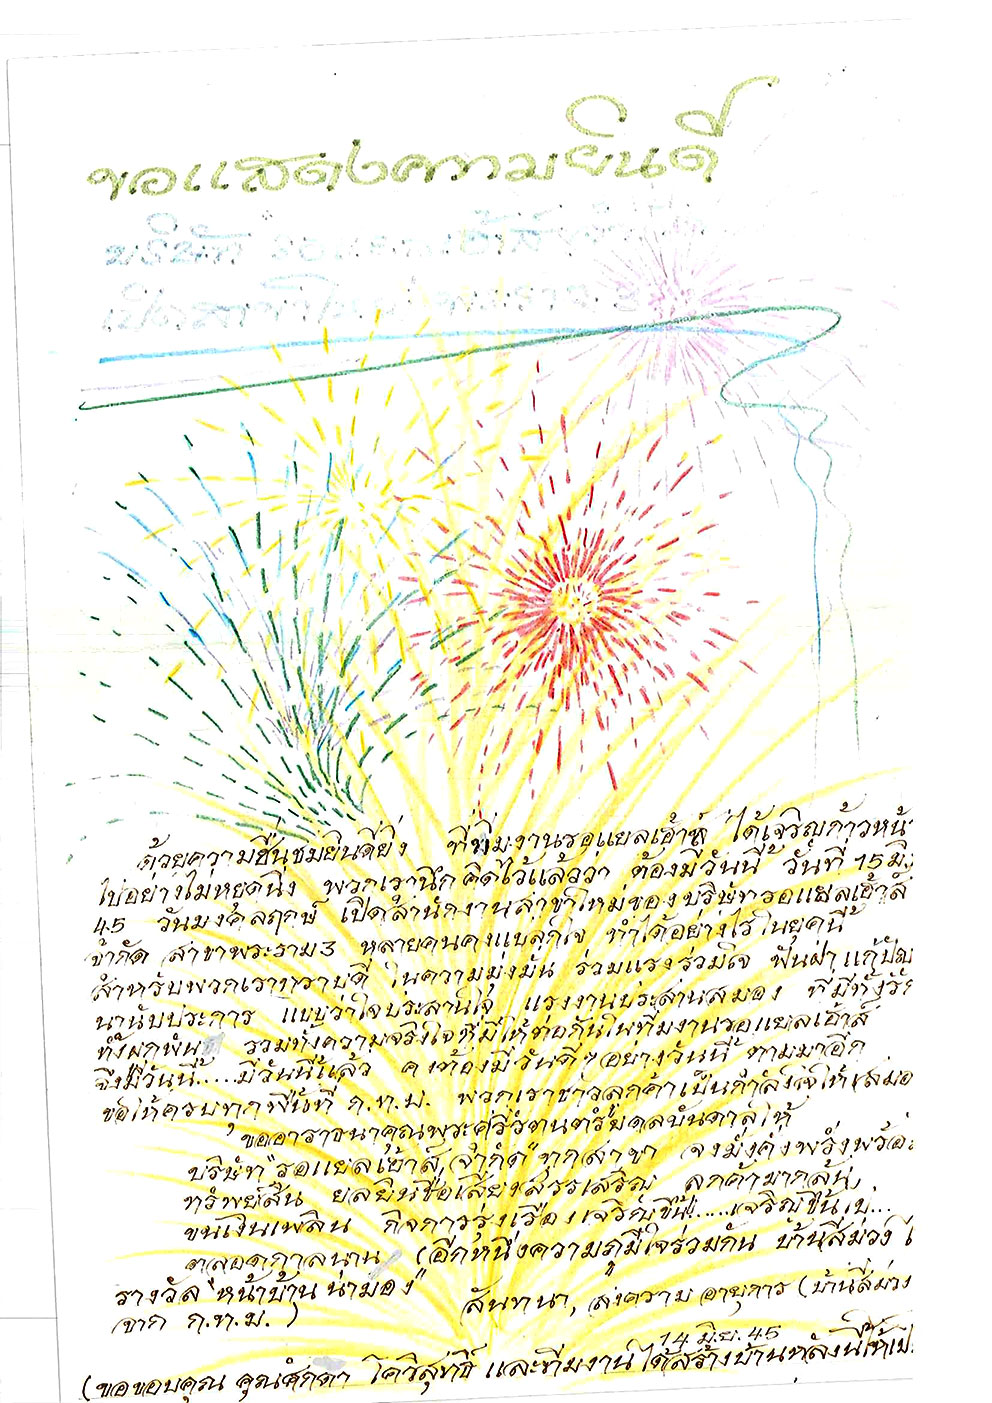 ขอแสดงความยินดี
บริษัท รอแยลเฮ้าส์ จำกัด
เปิดสาขาใหม่ พระราม 3
ด้วยความชื่นชมยินดียิ่ง ที่ทีมงานรอแยลเฮ้าส์ ได้เจริญก้าวหน้า
ไปอย่างไม่หยุดนิ่ง พวกเรานึกคิดไว้แล้วว่า ต้องมีวันนี้ วันที่ 15 มิ.
45 วันมงคลฤกษ์ เปิดสำนักงานสาขาใหม่ของบริษัทรอแยลเฮ้าส์
จำกัด สาขาพระราม3 หลายคนคงแปลกใจ ทำได้อย่างไรในยุคนี้
สำหรับพวกเราทราบดี ในความมุ่งมั่น ร่วมแรงร่วมใจ ฟันฝ่า แก้ปัญ
นานับประการ แบบว่าใจประสานใจ แรงงานประสานสมอง ที่มีทั้งรัก
ทั้งผูกพัน รวมทั้งความจริงใจที่มีให้ต่อกันในทีมงานรอแยลเฮ้าส์
จึงมีวันนี้.....มีวันนี้แล้ว คงต้องมีวันดีๆอย่างวันนี้ ตามมาอีก
ขอให้ครบทุกพื้นที่ ก.ท.ม. พวกเราชาวลูกค้าเป็นกำลังใจให้เสมอ
ขออาราธนาคุณพระศรีรัตนตรัยดลบันดาลให้
บริษัท "รอแยลเฮ้าส์, จำกัด" ทุกสาขา จงมั่งคั่งพรั่งพร้อม
ทรัพย์สิน ยลยินชื่อเสียงสรรเสริญ ลูกค้ามากล้น,
ขนเงินเพลิน กิจการรุ่งเรืองเจริญขึ้น!.....เจริญขึ้นไป...
ตลอดกาลนาน (อีกหนึ่งความภูมิใจร่วมกัน บ้านสีม่วง ไ
รางวัล "หน้าบ้าน น่ามอง"
จาก ก.ท.ม.)
สันทนา, สงคราม อายุการ (บ้านสีม่วง
14 มิ.ย. 45
(ขอขอบคุณ คุณศักดา โควิสุทธิ์ และทีมงาน ได้สร้างบ้านหลังนี้ให้เป